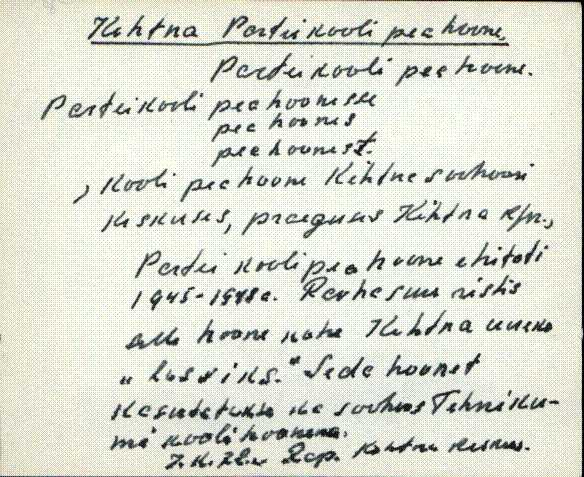 Kehtna Parteikooli peahoone,
Parteikooli peahoone.
Parteikooli peahoonesse
peahoones
peahoonest.
, Kooli peahoone Kehtna sovhoosi
keskuses, praeguses Kehtna k/n.,
Partei kooli peahoone ehitati
1945-1948 a. Rahvasuu ristis
selle hoone kohe Kehtna uueks
"lossiks." Seda hoonet
kasutatakse ka sovhoos Tehniku-
mi koolihoonena.
Kehtna keskus.